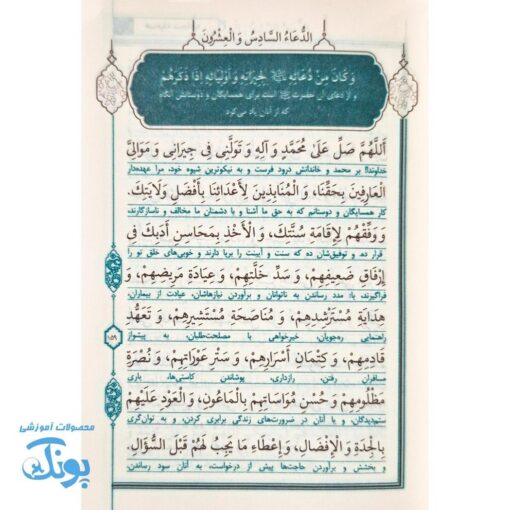 الدُّعَاءُ السَّادِسُ وَ الْعِشْرُونَ
وَ كَانَ مِنْ دُعَائِهِ ﷺ لِجِيرَانِهِ وَ أَوْلِيَائِهِ إِذَا ذَكَرَهُمْ
و از دعای آن حضرت ﷺ است برای همسایگان و دوستانش آنگاه
که از آنان یاد می‌کرد
أَللَّهُمَّ صَلِّ عَلَىٰ مُحَمَّدٍ وَ آلِهِ وَ تَوَلَّنِى فِى جِيرَانِى وَ مَوَالِىَّ
خداوندا! بر محمد و خاندانش درود فرست و به نیکوترین شیوه خود، مرا عهده‌دار
الْعَارِفِينَ بِحَقِّنَا، وَ الْمُنَابِذِينَ لِأَعْدَائِنَا بِأَفْضَلِ وَلَايَتِكَ.
کار همسایگان و دوستانم که به حق ما آشنا و با دشمنان ما مخالف و ناسازگارند،
وَ وَفِّقْهُمْ لِإِقَامَةِ سُنَّتِكَ، وَ الْأَخْذِ بِمَحَاسِنِ أَدَبِكَ فِى
قرار ده. و توفیق‌شان ده که سنت و آیینت را برپا دارند و خوبی‌های خلق تو را
إِرْفَاقِ ضَعِيفِهِمْ، وَ سَدِّ خَلَّتِهِمْ، وَ عِيَادَةِ مَرِيضِهِمْ، وَ
فراگیرند، با: مدد رساندن به ناتوانان و برآوردن نیازهاشان، عیادت از بیماران،
هِدَايَةِ مُسْتَرْشِدِهِمْ، وَ مُنَاصَحَةِ مُسْتَشِيرِهِمْ، وَ تَعَهُّدِ
راهنمایی ره‌جویان، خیرخواهی با مصلحت‌طلبان، به پیشواز
قَادِمِهِمْ، وَ كِتْمَانِ أَسْرَارِهِمْ، وَ سَتْرِ عَوْرَاتِهِمْ، وَ نُصْرَةِ
مسافران رفتن، رازداری، پوشاندن کاستی‌ها، یاری
مَظْلُومِهِمْ وَ حُسْنِ مُوَاسَاتِهِمْ بِالْمَاعُونِ، وَ الْعَوْدِ عَلَيْهِمْ
ستمدیدگان، و با آنان در ضرورت‌های زندگی برابری کردن، و به توان‌گری
بِالْجِدَةِ وَ الْإِفْضَالِ، وَ إِعْطَاءِ مَا يَجِبُ لَهُمْ قَبْلَ السُّؤَالِ.
و بخشش و برآوردن حاجت‌ها پیش از درخواست، به آنان سود رساندن.
۱۵۹
محصولات آموزشی
پونک